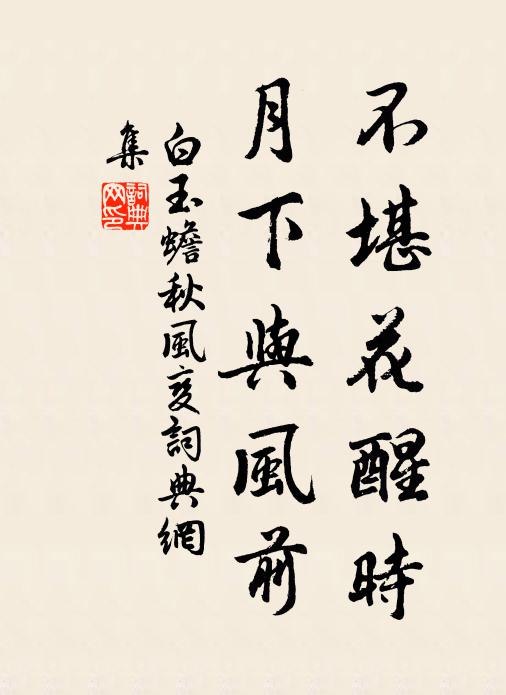 不堪花醒時
月下與風前
白玉蟾秋風變詞典網
集
詞典網印